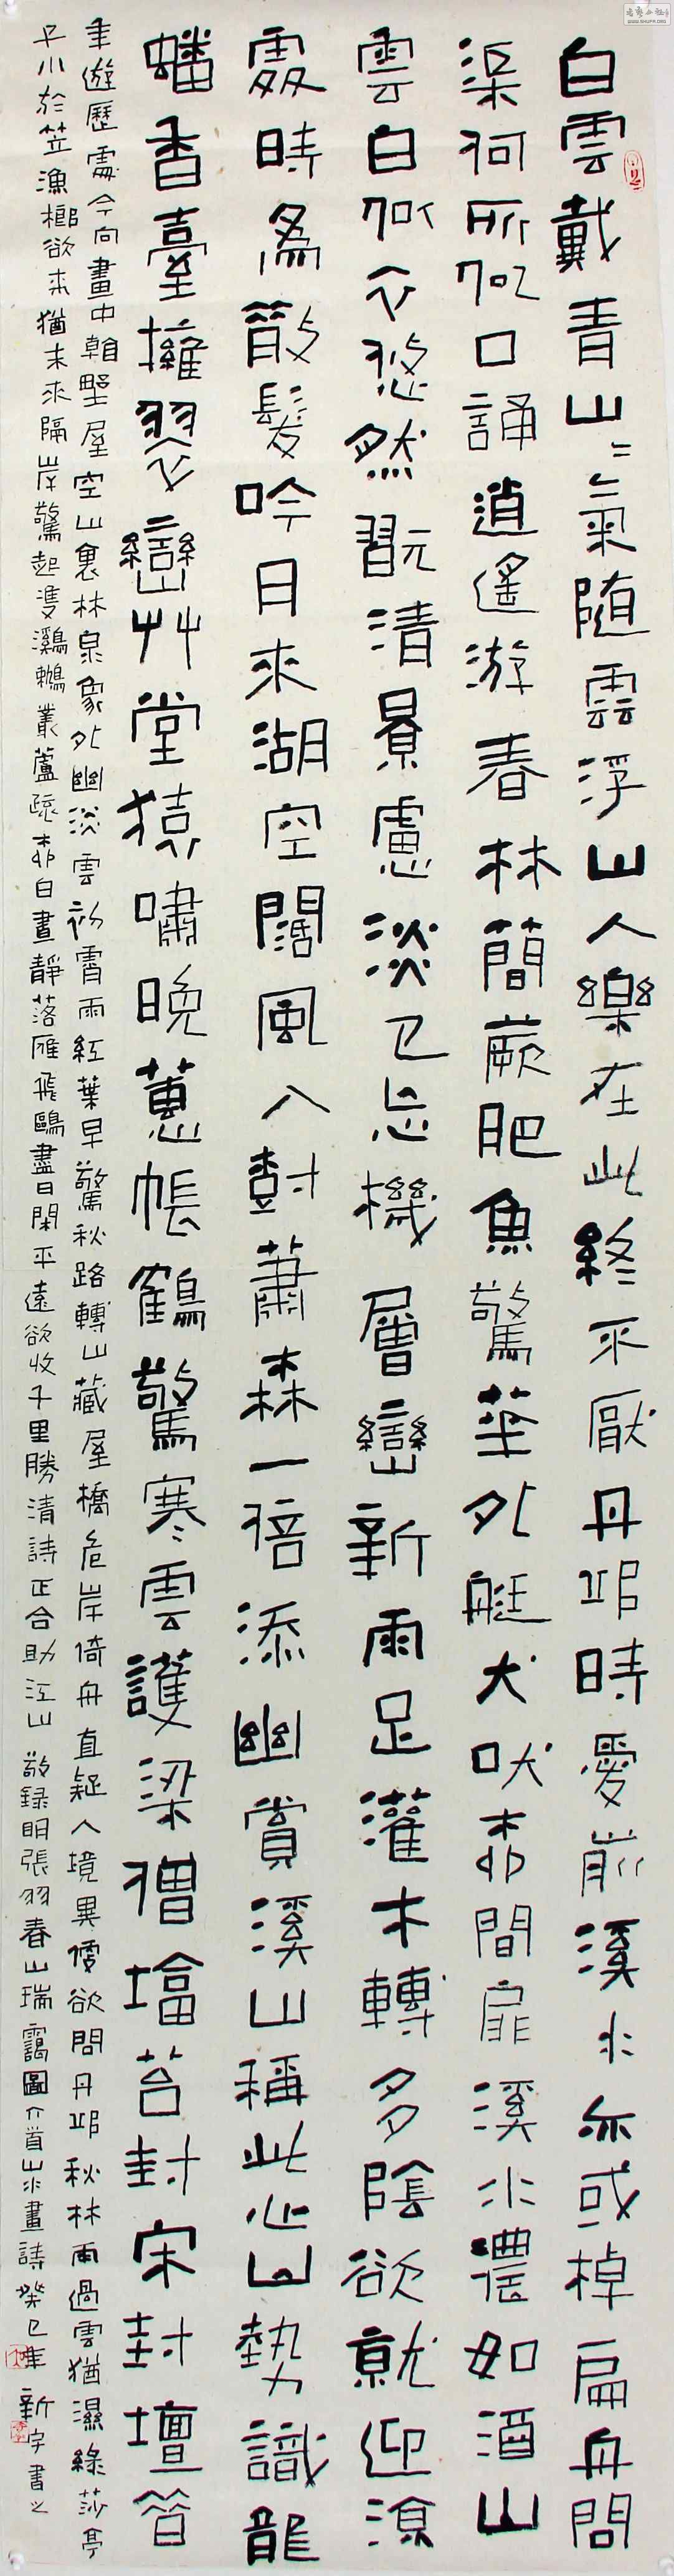 白雲戴青山山氣随雲浮山人樂在此終不厭丹邱時愛前溪水亦或棹扁舟問
渠何所似口誦逍遙游春林簡蕨肥魚驚華外艇犬吠柳間扉溪水濃如酒山
雲白似衣悠然翫清景慮淡已忘機層巒新雨足灌木轉多陰欲就迎涼
處時為散髮吟日來湖空闊風入對蕭森一倍添幽賞溪山稱此心山勢識龍
蟠香臺擁翠巒艸堂猿嘯晚蕙帳鶴驚寒雲護梁僧塔苔封宋封壇昔
年遊歷處今向畫中看野屋空山裏林泉象外幽淡雲初霽雨紅葉早驚秋路轉山藏屋橋危岸倚舟直疑人境異便欲問丹邱秋林雨過雲猶濕綠莎亭
子小於笠漁榔欲來猶未來隔岸驚起雙鸂鶒叢蘆疏柳白晝靜落雁飛鷗盡日閑平遠欲收千里勝清詩正合助江山 敬録明張羽春山瑞靄圖六首山水畫詩癸巳年 新宇書之